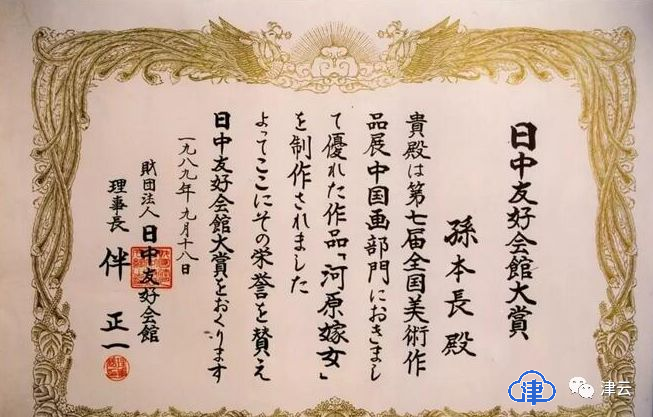 日中友好会館大賞
孫本長 殿
貴殿は第七届全国美術作
品展中国画部門におきまし
て優れた作品「河原嫁女」
を制作されました
よってここにその栄誉を賛え
日中友好会館大賞をおくります
一九八九年 九月十八日
財団法人 日中友好会館
理事長 伴 正一
津
津云